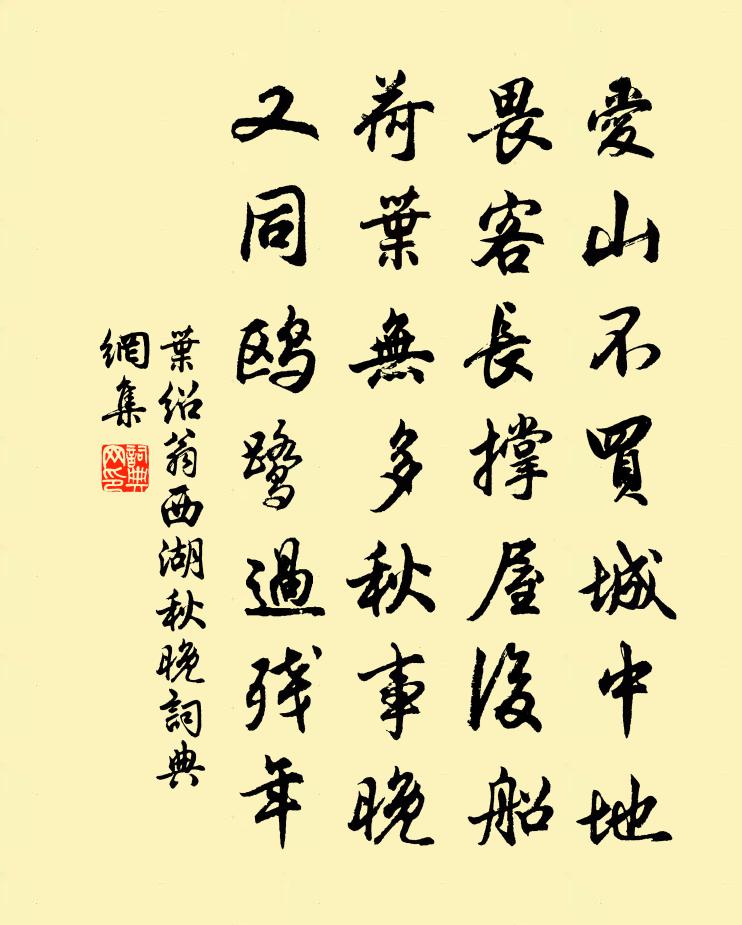 愛山不買城中地
畏客長撐屋後船
荷葉無多秋事晚
又同鸥鹭過残年
葉绍翁西湖秋晚詞典
網集
詞典网印